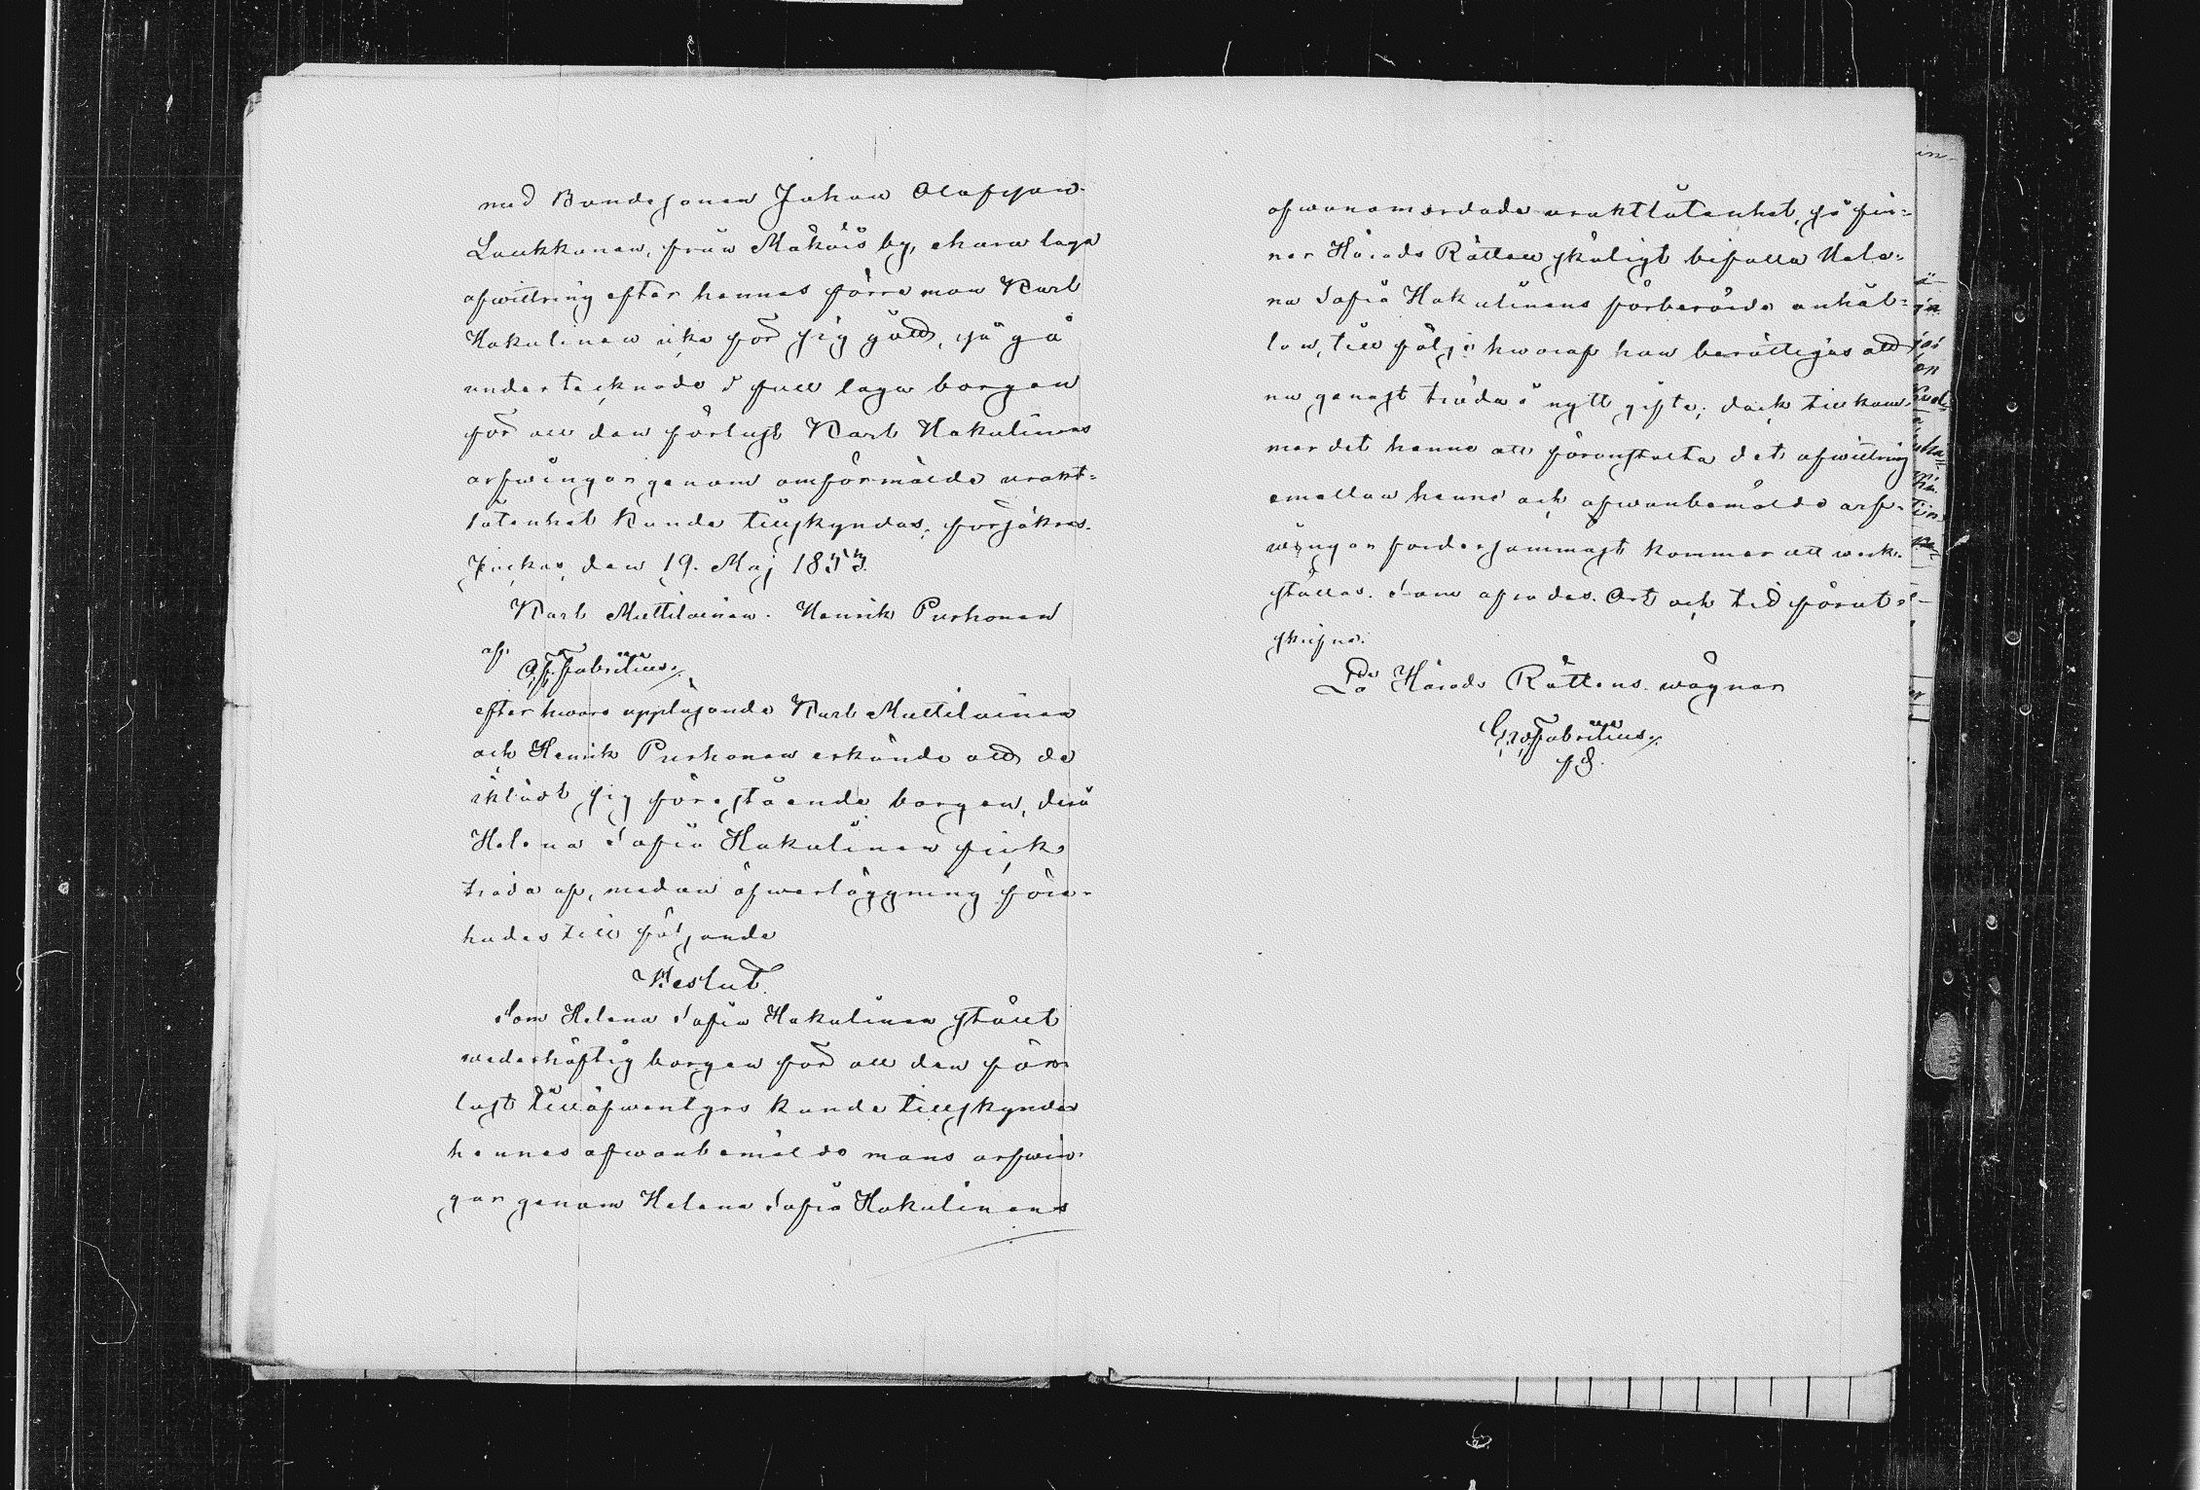 med Bondesonen Johan Olafsson
Laukkanen, från Mäkäis by, ehuru laga
afwittring efter hennes förre man Karl
Hakulinen icke för sig gått, så gå
undertecknade i full laga borgen
för all den förlust Karl Hakulinens
arfwingar genom omförmälde urakt-
låtenhet kunde tillskyndas; försäkras.
Jockas, den 19. Maj 1853.
Karl Muttilainen. Henrik Purhonen
af.
Fabritius
efter hwars uppläsande Karl Muttilainen
och Henrik Purhonen erkände att de
iklädt sig förestående borgen, derå
Helena Sofia Hakulinen fick
träda af, medan öfwerläggning före-
hades till följande
Beslut.
Som Helena Sofia Hakulinen ställt
wederhäftig borgen för all den för-
lust till äfwentyrs kunde tillskyndas
hennes ofwanbemälde mans arfwin-
gar genom Helena Sofia Hakulinens
ofwananmerdade uraktlåtenhet, så fin-
ner Härads Rätten skäligt bifalla Hele-
na Sofia Hakulinens förberörde anhål-
lan, till följe hwaraf hon berättigas att
nu genast träda i nytt gifte; dock tillkom-
mer det henne att föranstalta det afwittring
emellan henne och ofwanbemälde arf-
wingar fordersammast kommer att werk-
ställas. Som afsades. Ort och tid förut-
skrifne.
På Härads Rättens wägnar
Fabritius